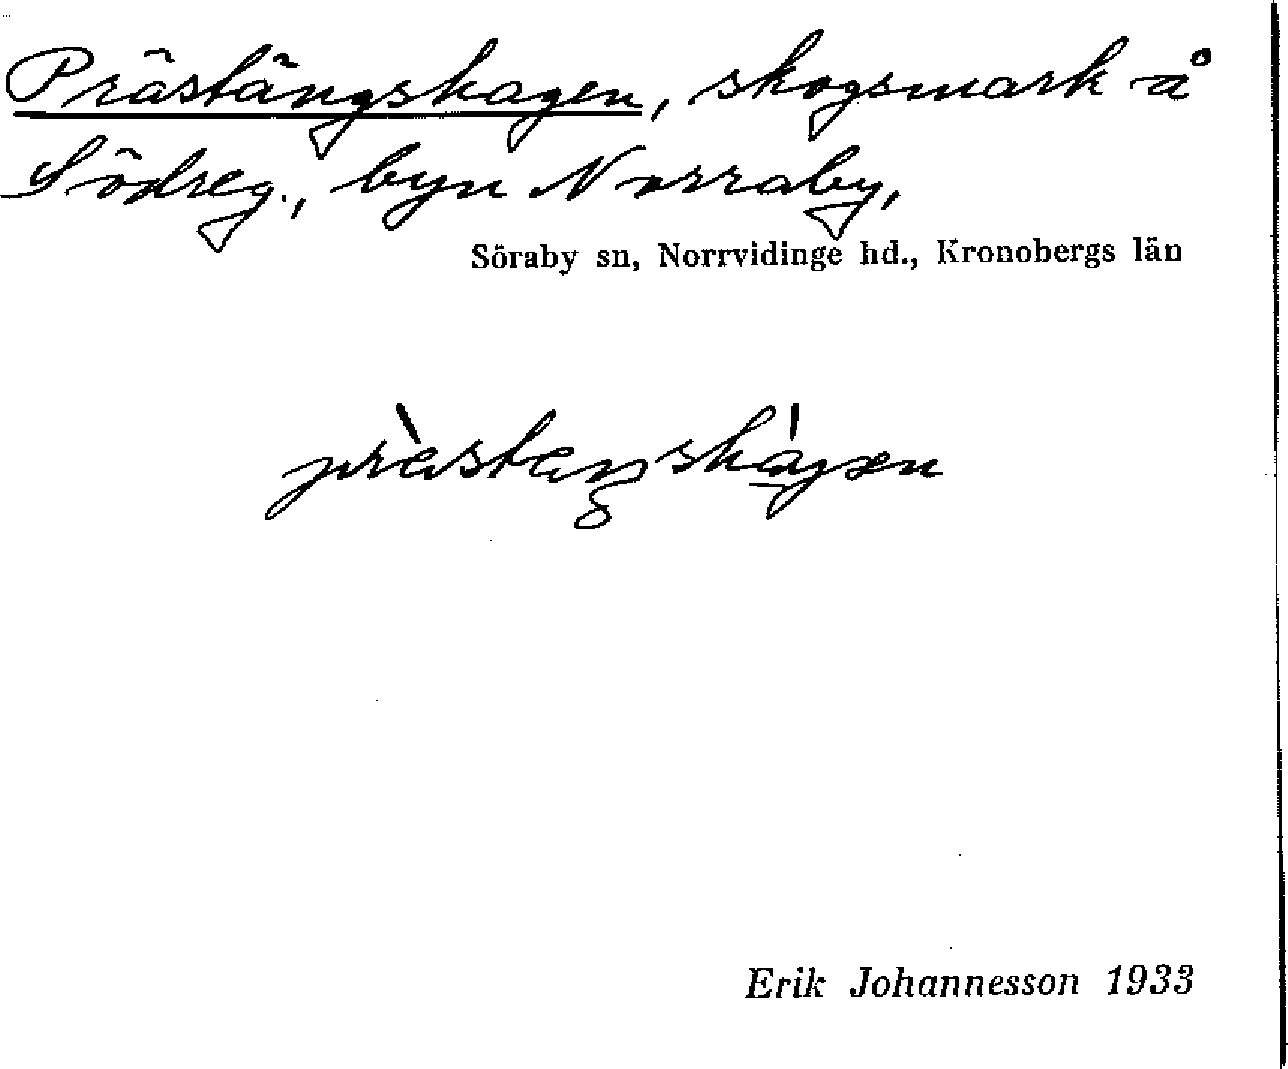 Prästängshagen, skogsmark å
Södreg., byn Norraby,
Söraby sn, Norrvidinge hd., Kronobergs län
Erik Johannesson 1933